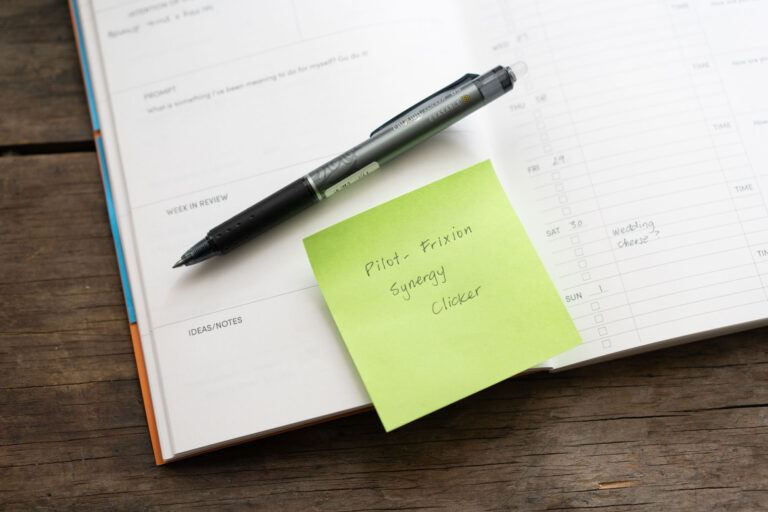 PROMPT
What is something I've been meaning to do for myself? Go do it!
WEEK IN REVIEW
IDEAS/NOTES
Pilot- Frixion
Synergy
Clicker
TIME
WED 27
TIME
THU 28
TIME
FRI 29
TIME
SAT 30
Wedding
cheese?
SUN 1